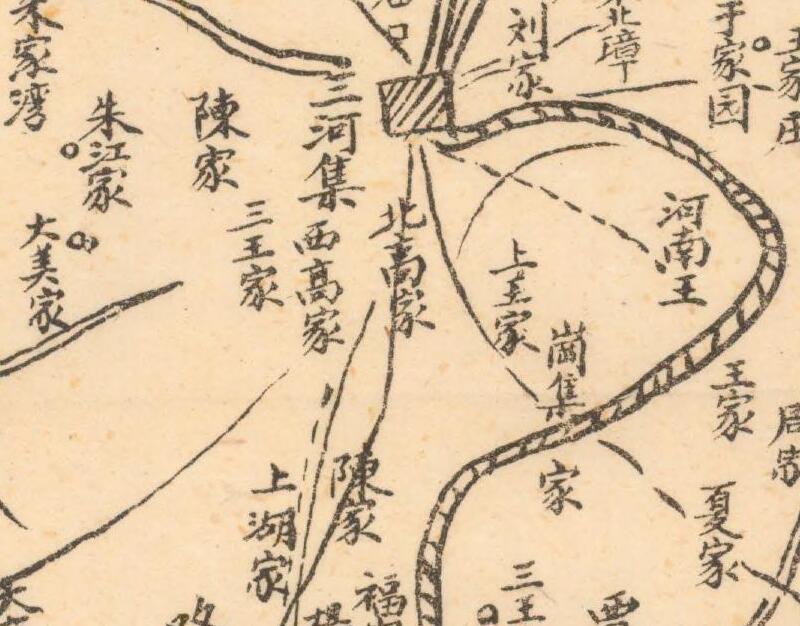 家湾
朱江家
陳家
三河集
刘家
北漳
于家园
王家庄
大美家
三王家
西高家
北高家
上王家
河南王
崗集
王家
上湖家
陳家
家
夏家
三王
福